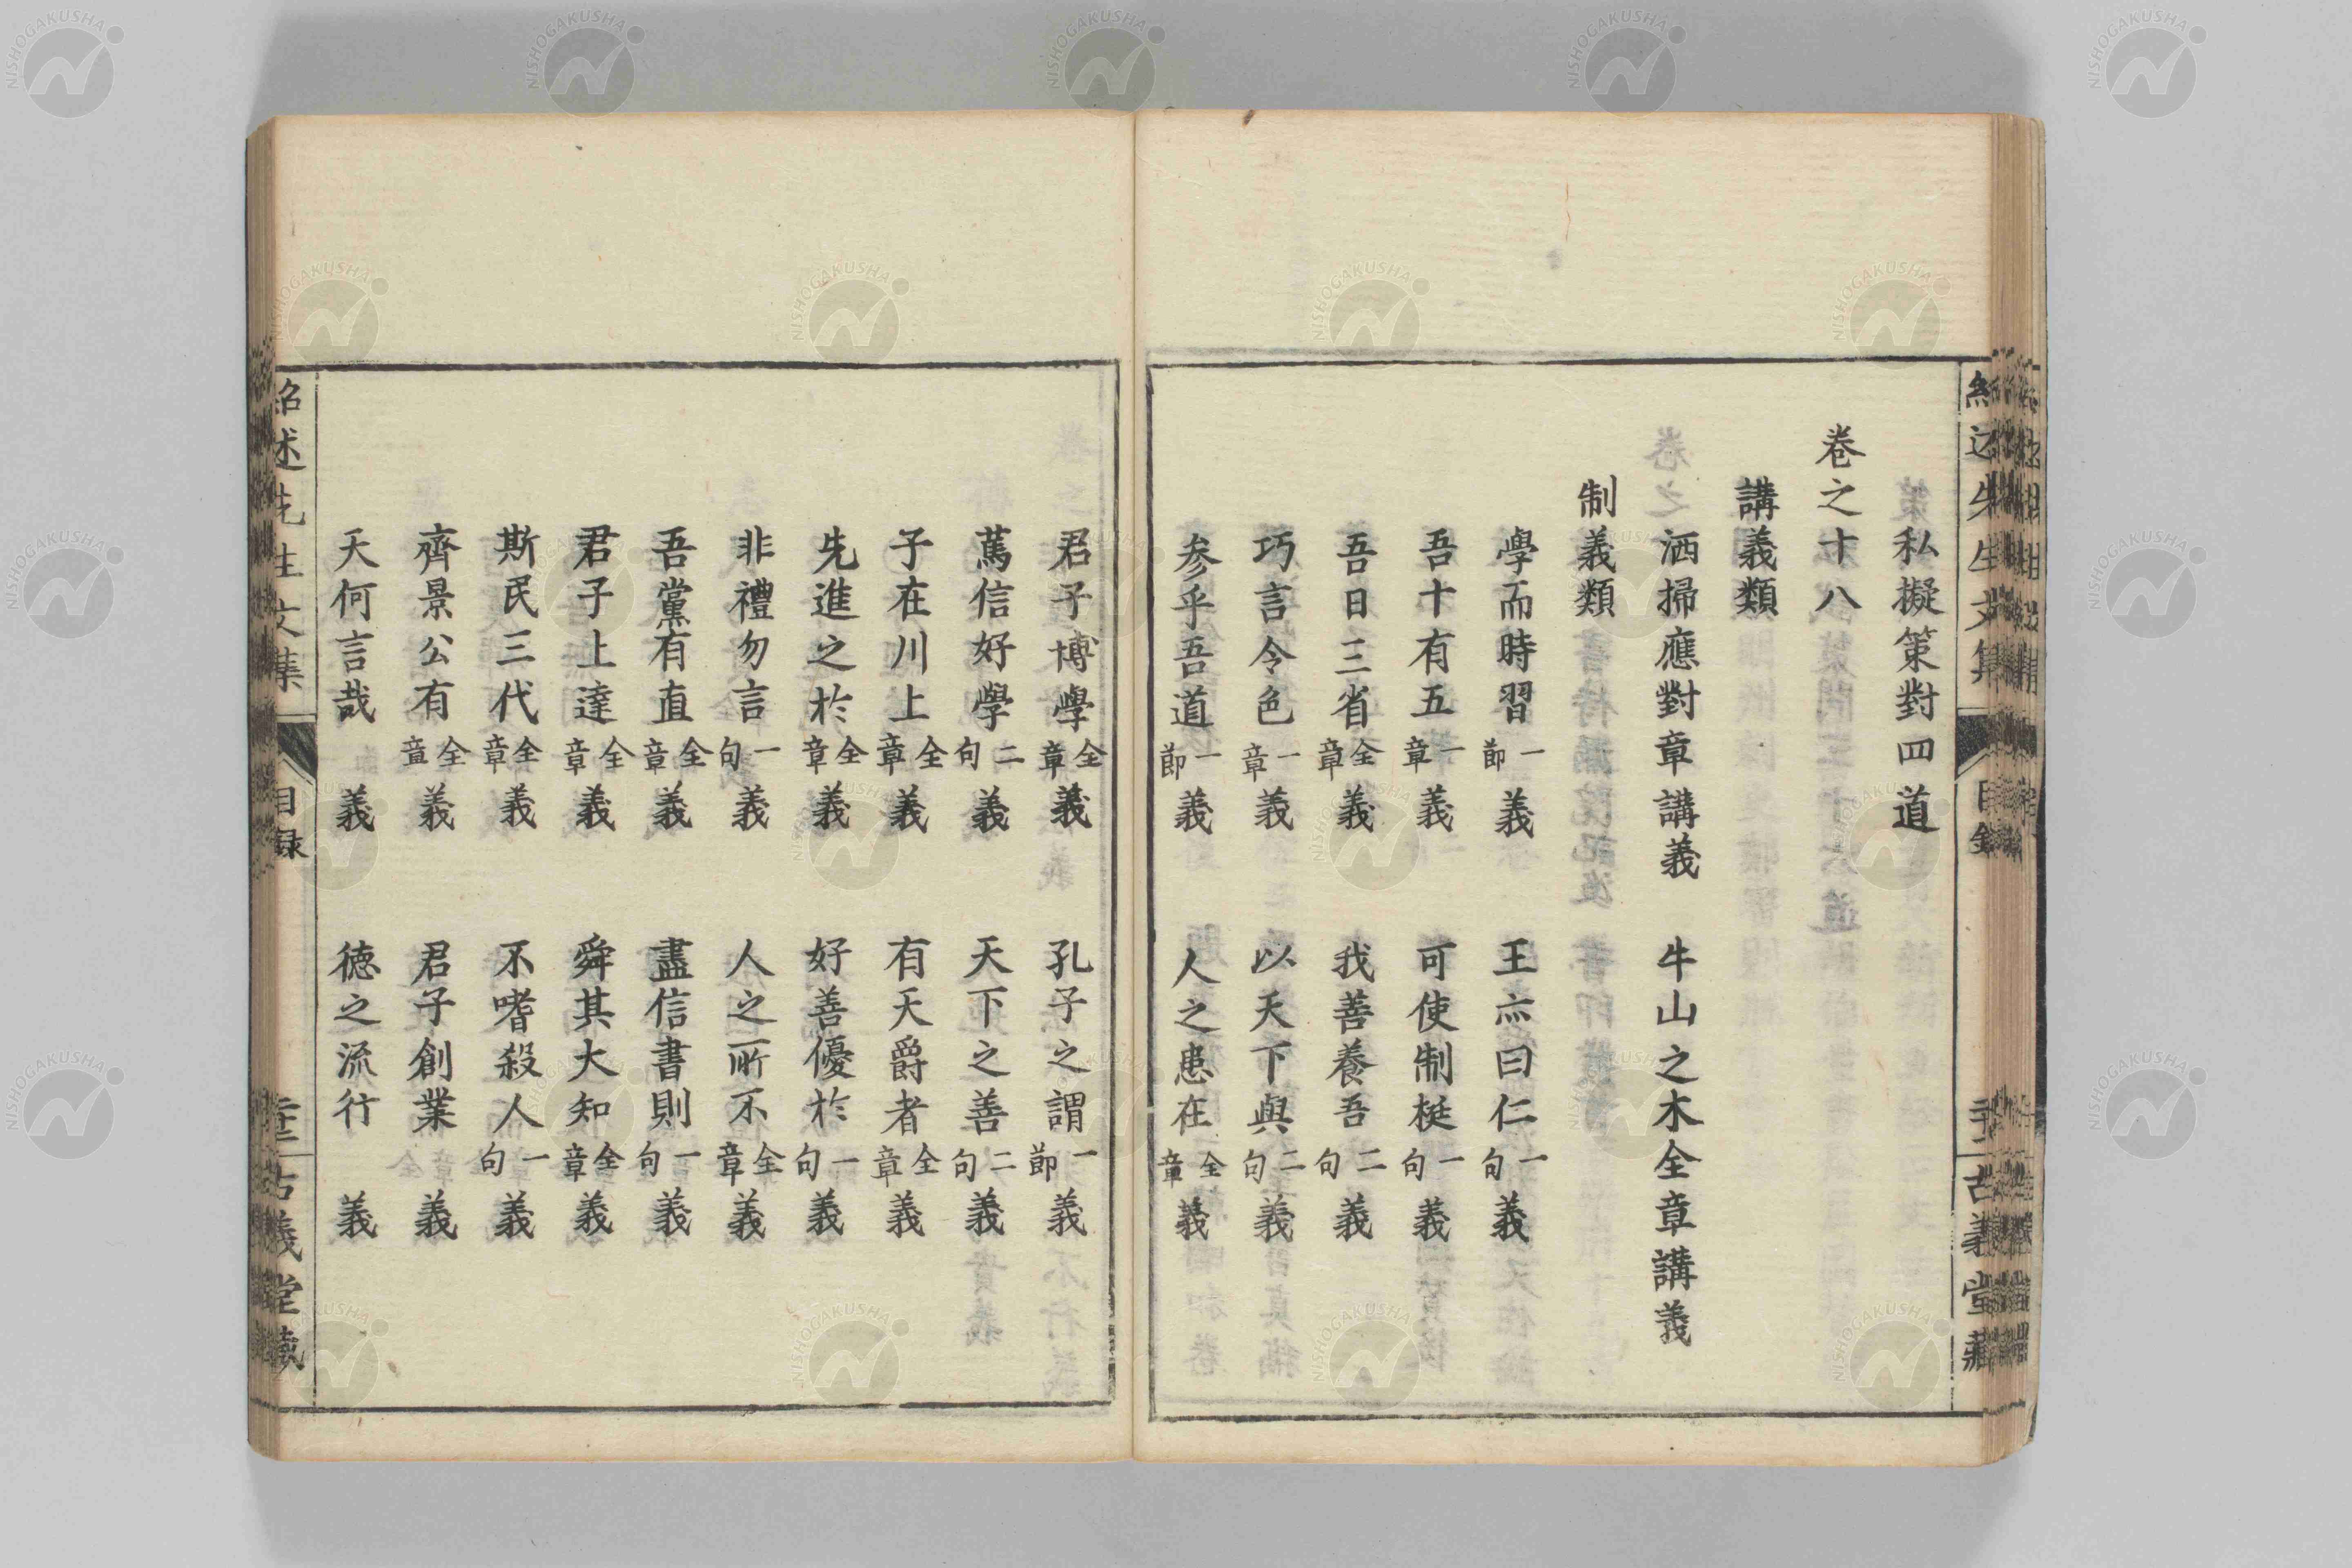 私擬策對四道
卷之十八
講義類
洒掃應對章講義　牛山之木全章講義
制義類
學而時習一節義　王亦曰仁一句義
吾十有五一章義　可使制梃一句義
吾日三省全章義　我善養吾二句義
巧言令色一章義　以天下與二句義
参乎吾道一節義　人之患在全章義
君子博學全章義　孔子之謂一節義
篤信好學二句義　天下之善二句義
子在川上全章義　有天爵者全章義
先進之於全章義　好善優於一句義
非禮勿言一句義　人之所不全章義
吾黨有直全章義　盡信書則一句義
君子上達全章義　舜其大知全章義
斯民三代全章義　不嗜殺人一句義
齊景公有全章義　君子創業義
天何言哉義　德之流行義
紹述先生文集　目録　古義堂藏
NISHOGAKUSHA